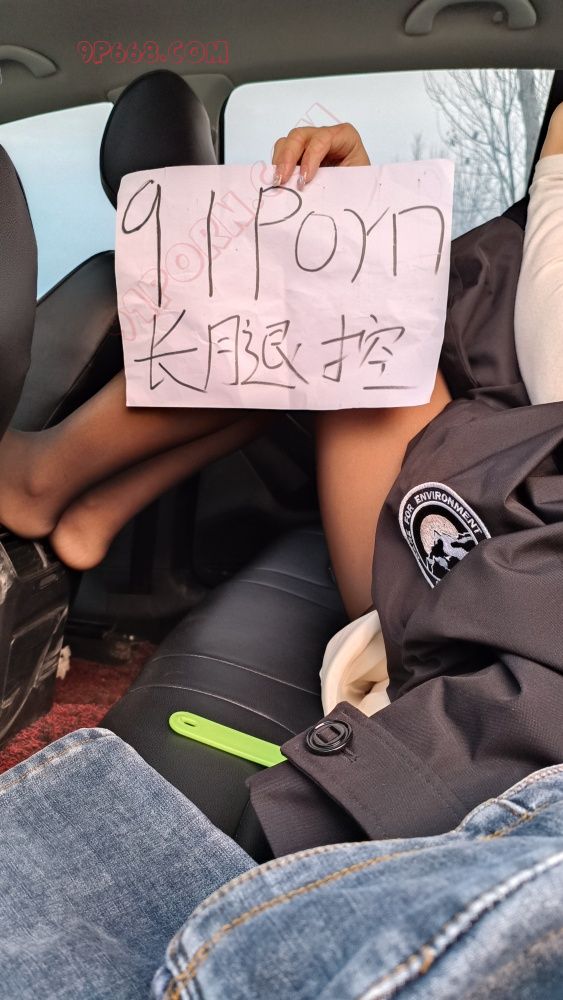 9P668.COM
91PORN.COM
91Porn
长腿控
FOR ENVIRONMENT